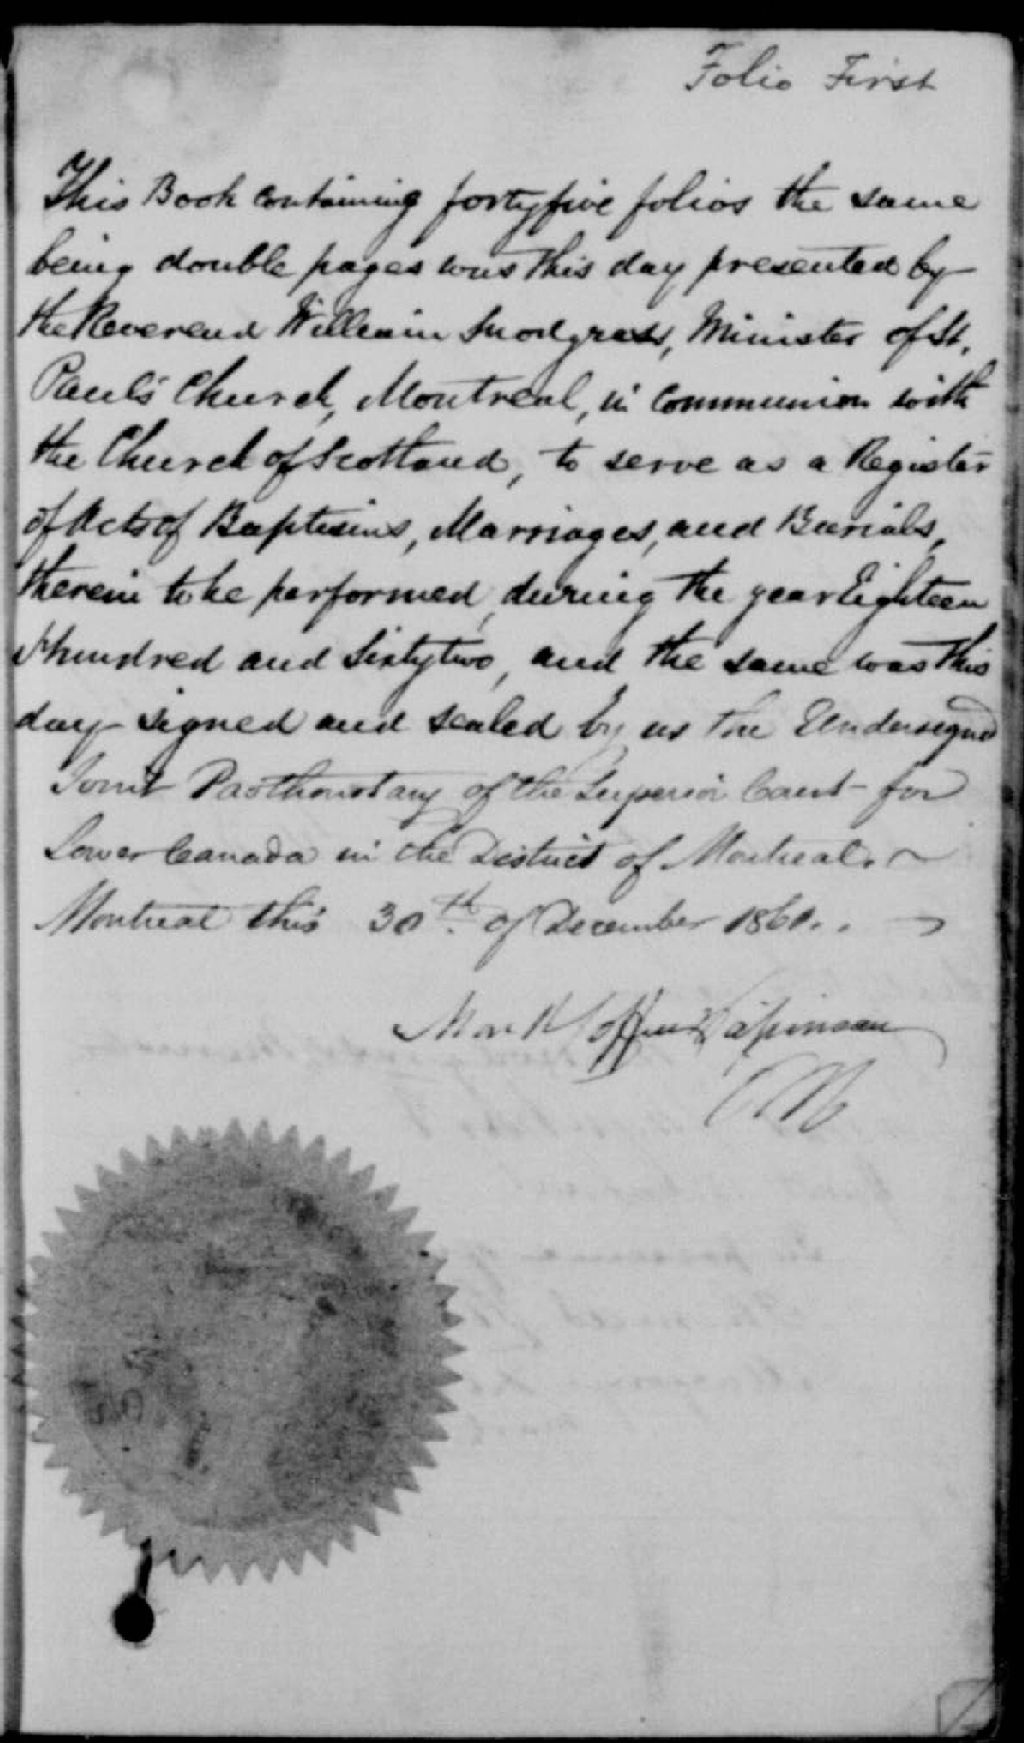 Folio First
This Book containing fortyfive folios the same
being double pages was this day presented by
the Reverend William Snodgrass, Minister of St.
Paul's Church, Montreal, in Communion with
the Church of Scotland, to serve as a Register
of Acts of Baptisms, Marriages, and Burials,
therein to be performed, during the year Eighteen
hundred and Sixtytwo, and the same was this
day signed and sealed by us the Undersigned
Joint Prothonotary of the Superior Court for
Lower Canada in the District of Montreal.
Montreal this 30th. of December 1861.
Monk Coffin & Papineau